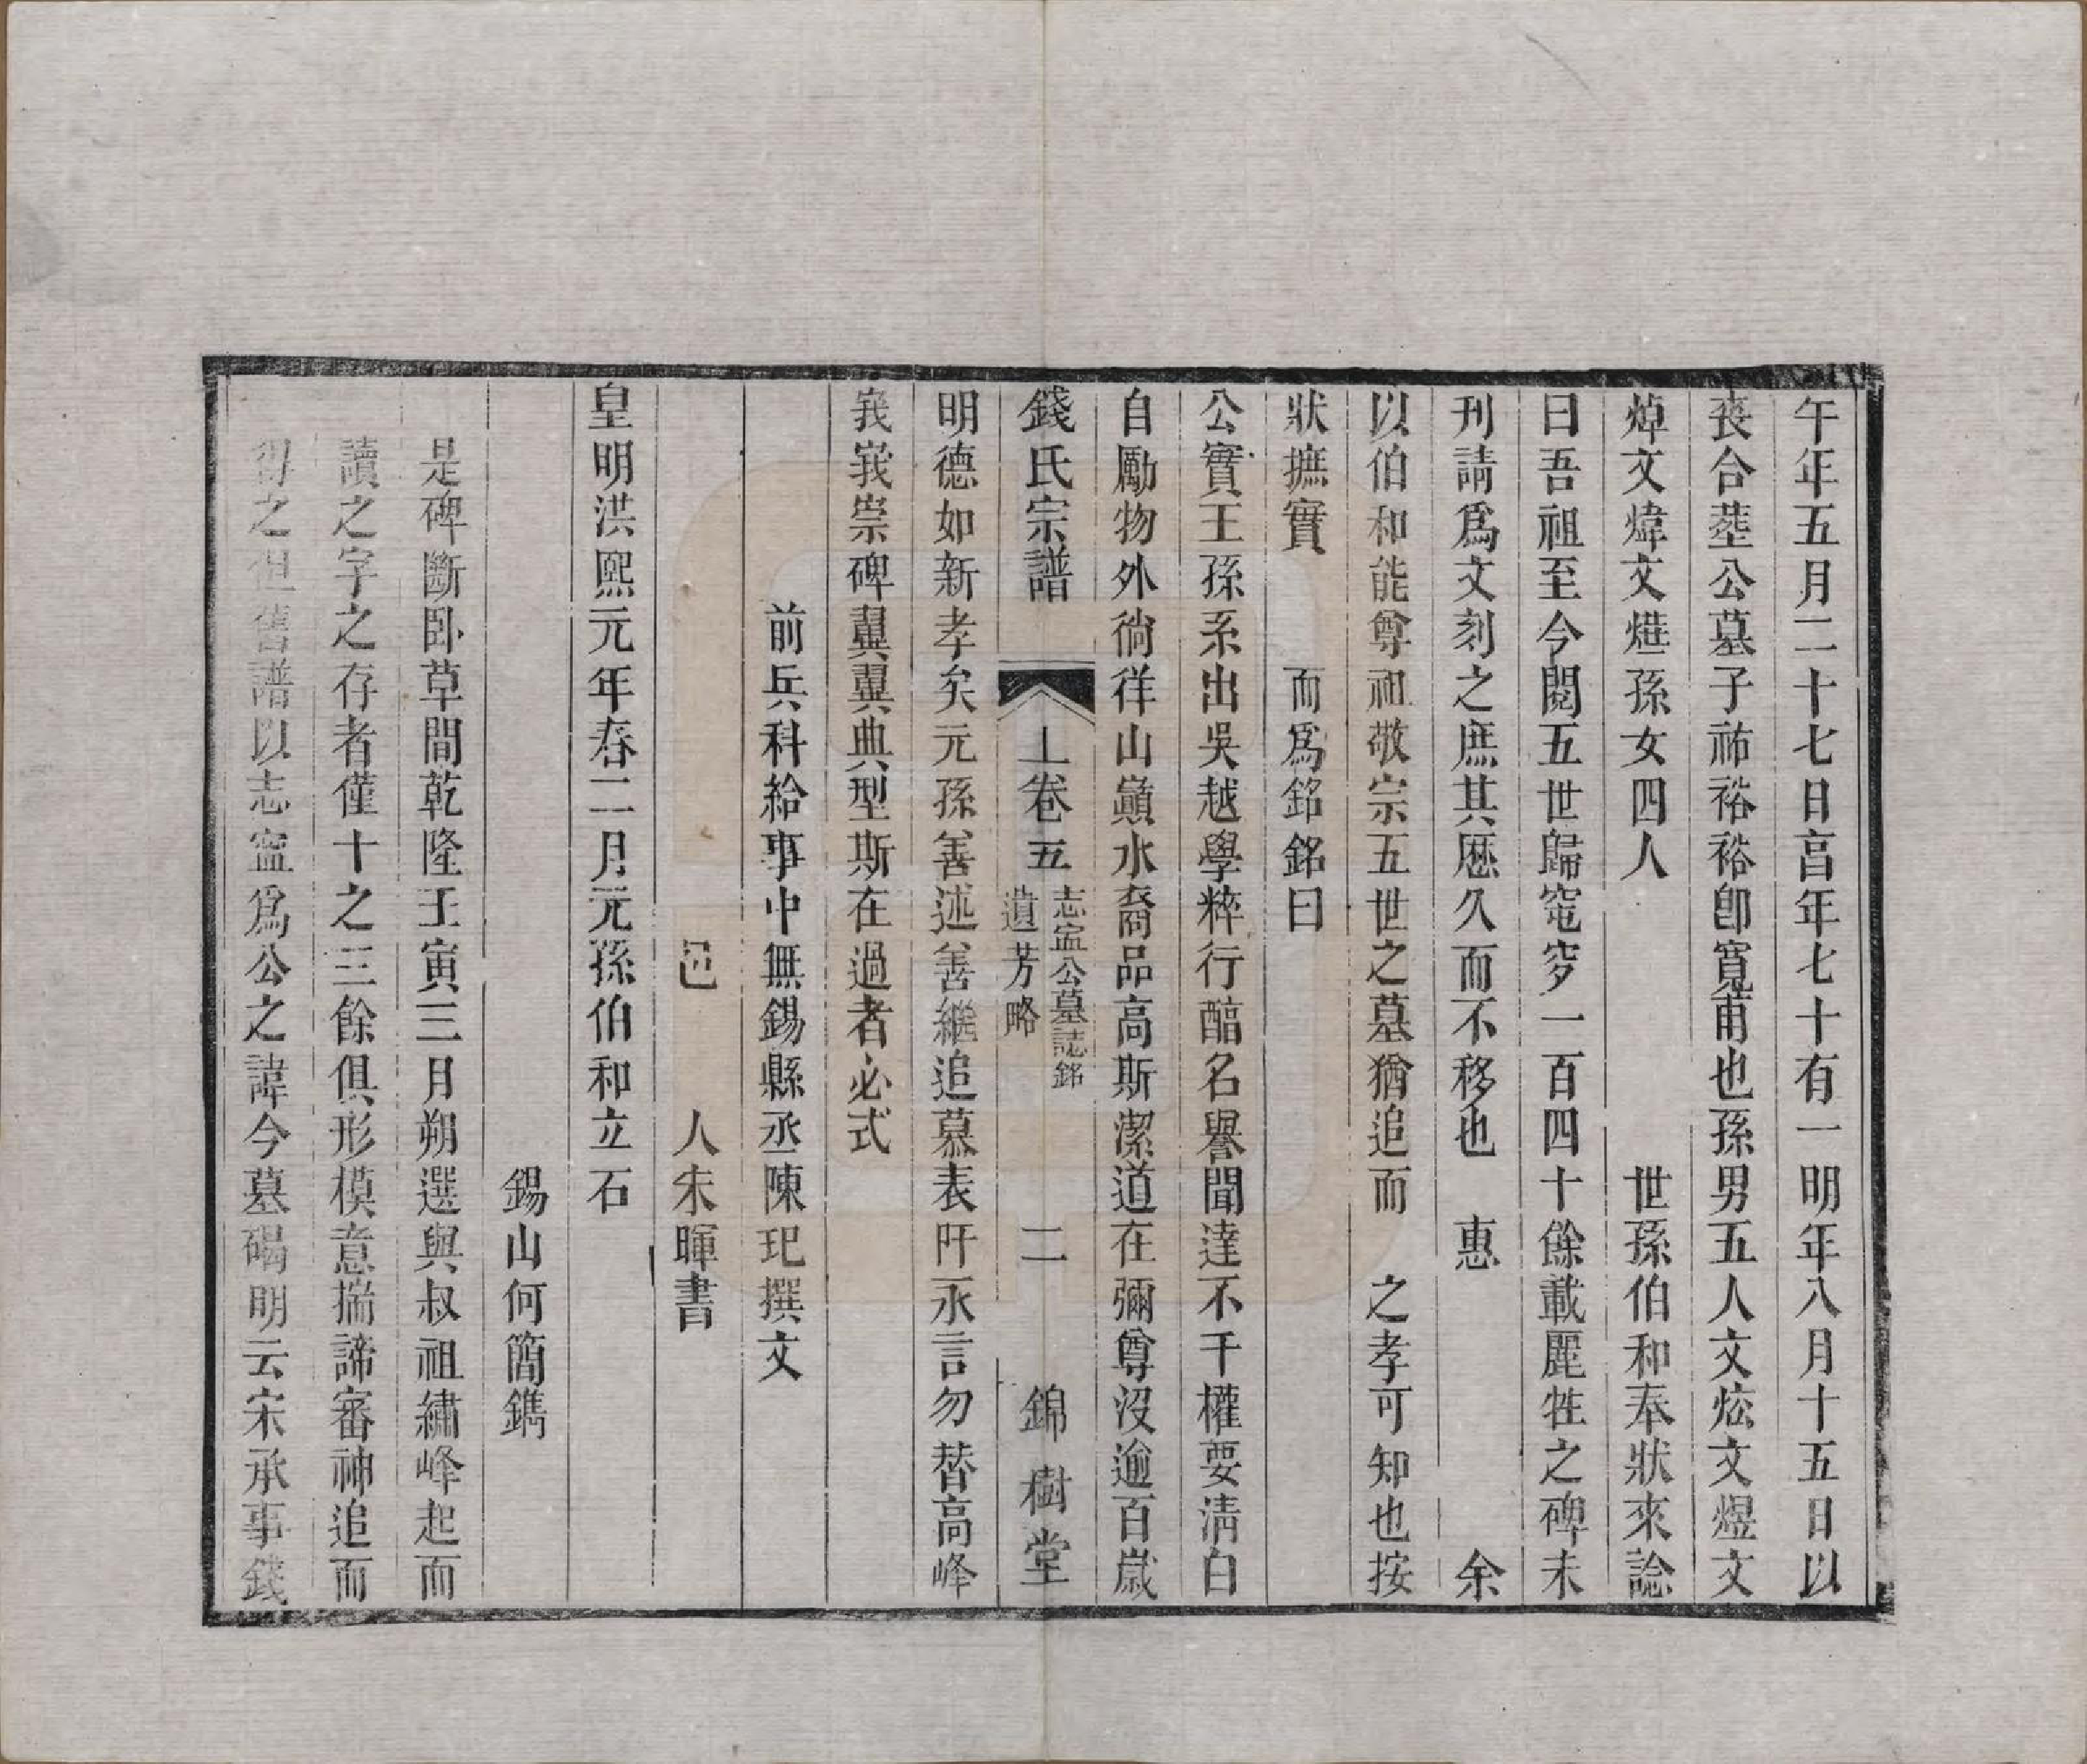 午年五月二十七日亯年七十有一明年八月十五日以
丧合塟公墓子祐裕裕卽寬甫也孫男五人文炫文煜文
焯文煒文烓孫女四人　世孫伯和奉狀來諗
曰吾祖至今閱五世歸窀穸一百四十餘載麗牲之碑未
刊請爲文刻之庶其歷久而不移也　惠　余
以伯和能尊祖敬宗五世之墓猶追而　之孝可知也按
狀摭實　而爲銘銘曰
公實王孫系出吳越學粹行醇名譽聞達不干權要淸白
自勵物外徜徉山巔水裔品高斯潔道在彌尊沒逾百歲
錢氏宗譜　上卷五　志寍公墓誌銘　遺芳略　二　錦樹堂
明德如新孝矣元孫善述善繼追慕表阡永言勿替高峰
峩峩崇碑翼翼典型斯在過者必式
前兵科給事中無錫縣丞陳玘撰文
邑　人朱暉書
皇明洪熙元年春二月元孫伯和立石
錫山何簡鐫
是碑斷卧草間乾隆壬寅三月朔選與叔祖繡峰起而
讀之字之存者僅十之三餘俱形模意揣諦審神追而
得之但舊譜以志寍爲公之諱今墓碣明云宋承事錢